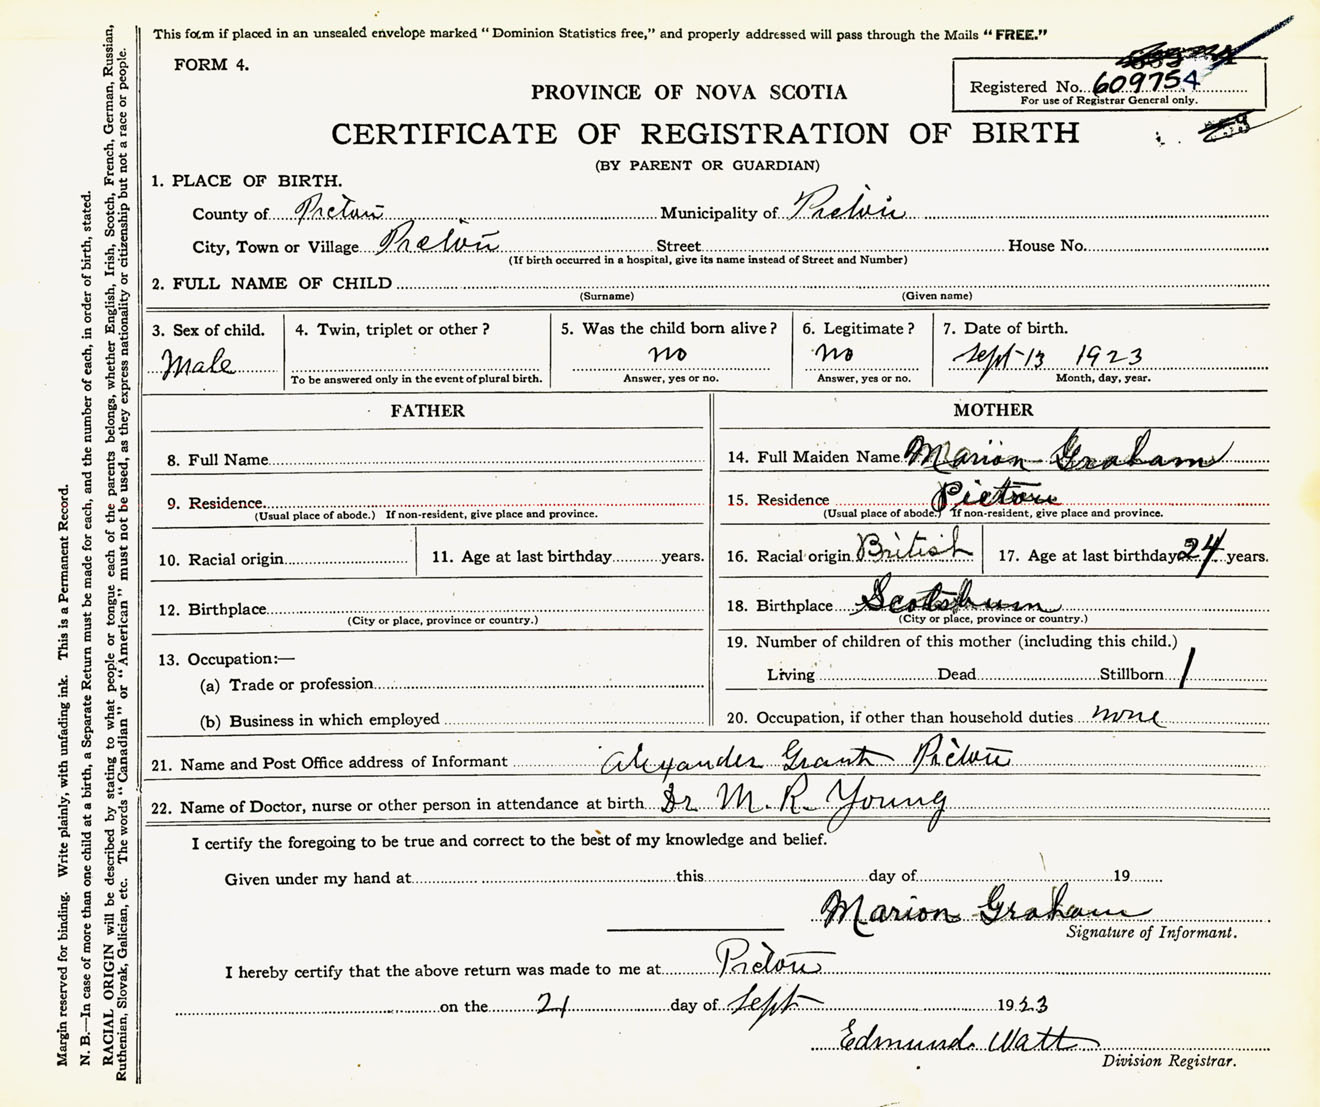 This form if placed in an unsealed envelope marked "Dominion Statistics free," and properly addressed will pass through the Mails "FREE."
FORM 4.
Registered No. 609754
For use of Registrar General only.
PROVINCE OF NOVA SCOTIA
CERTIFICATE OF REGISTRATION OF BIRTH
(BY PARENT OR GUARDIAN)
1. PLACE OF BIRTH.
County of Pictou Municipality of Pictou
City, Town or Village Pictou Street House No.
(If birth occurred in a hospital, give its name instead of Street and Number)
2. FULL NAME OF CHILD
(Surname) (Given name)
3. Sex of child. 4. Twin, triplet or other? 5. Was the child born alive? 6. Legitimate? 7. Date of birth.
Male no no Sept 13 1923
To be answered only in the event of plural birth. Answer, yes or no. Answer, yes or no. Month, day, year.
FATHER MOTHER
8. Full Name 14. Full Maiden Name Marion Graham
9. Residence 15. Residence Pictou
(Usual place of abode.) If non-resident, give place and province. (Usual place of abode.) If non-resident, give place and province.
10. Racial origin 11. Age at last birthday years. 16. Racial origin British 17. Age at last birthday 24 years.
12. Birthplace 18. Birthplace Scotsburn
(City or place, province or country.) (City or place, province or country.)
13. Occupation:— 19. Number of children of this mother (including this child.)
(a) Trade or profession Living Dead Stillborn 1
(b) Business in which employed 20. Occupation, if other than household duties none
21. Name and Post Office address of Informant Alexander Grant Pictou
22. Name of Doctor, nurse or other person in attendance at birth Dr M. R. Young
I certify the foregoing to be true and correct to the best of my knowledge and belief.
Given under my hand at this day of 19
Marion Graham
Signature of Informant.
I hereby certify that the above return was made to me at Pictou
on the 21 day of Sept 1923
Edmund Watt
Division Registrar.
Margin reserved for binding. Write plainly, with unfading ink. This is a Permanent Record.
N. B.—In case of more than one child at a birth, a Separate Return must be made for each, and the number of each, in order of birth, stated.
RACIAL ORIGIN will be described by stating to what people or tongue each of the parents belongs, whether English, Irish, Scotch, French, German, Russian,
Ruthenian, Slovak, Galician, etc. The words "Canadian" or "American" must not be used, as they express nationality or citizenship but not a race or people.